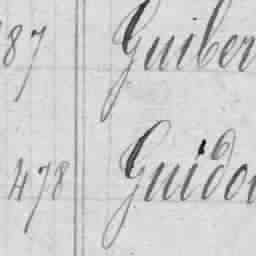 87 Guiber
478 Guido